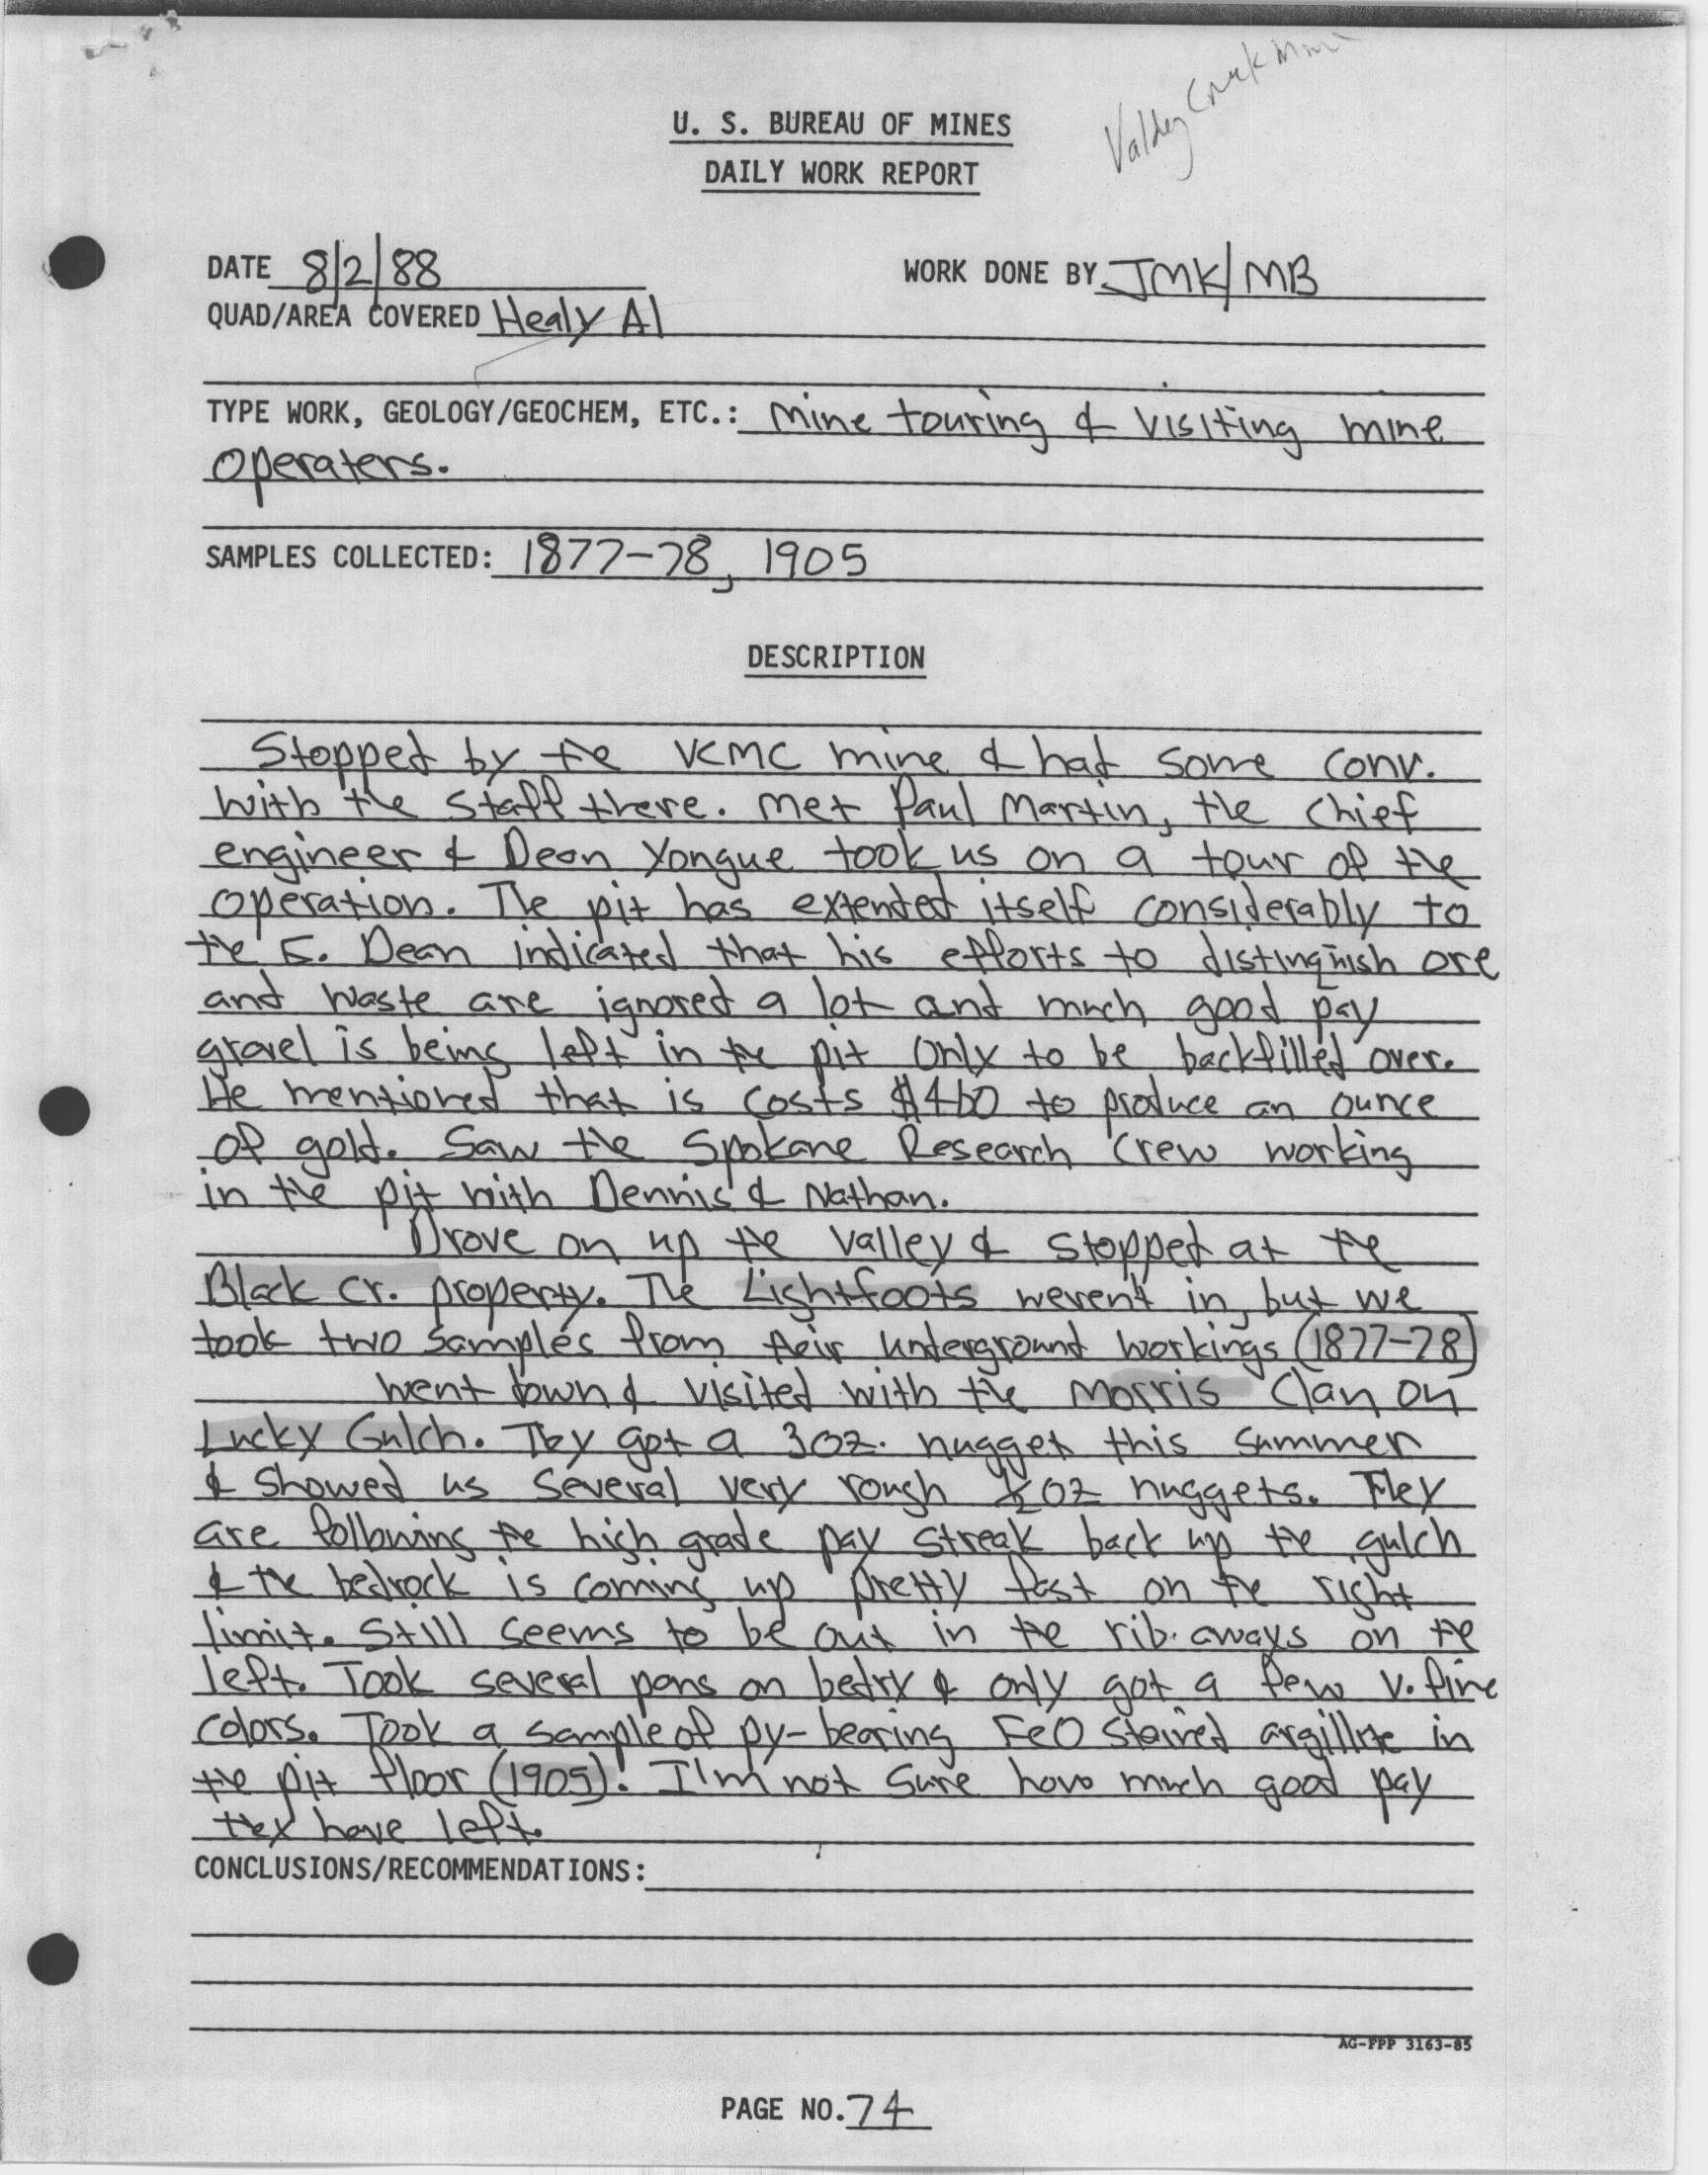 Valdez Creek Mine
U. S. BUREAU OF MINES
DAILY WORK REPORT
DATE 8/2/88 WORK DONE BY JMK/MB
QUAD/AREA COVERED Healy A1
TYPE WORK, GEOLOGY/GEOCHEM, ETC.: Mine touring & visiting mine
operaters.
SAMPLES COLLECTED: 1877-78, 1905
DESCRIPTION
Stopped by the VCMC mine & had some conv.
with the staff there. Met Paul Martin, the chief
engineer & Dean Yongue took us on a tour of the
operation. The pit has extended itself considerably to
the E. Dean indicated that his efforts to distinguish ore
and waste are ignored a lot and much good pay
gravel is being left in the pit only to be backfilled over.
He mentioned that is costs $460 to produce an ounce
of gold. Saw the Spokane Research crew working
in the pit with Dennis & Nathan.
Drove on up the valley & stopped at the
Black Cr. property. The Lightfoots weren't in, but we
took two samples from their underground workings (1877-78)
Went down & visited with the Morris Clan on
Lucky Gulch. They got a 3oz. nugget this summer
& showed us several very rough ½oz nuggets. They
are following the high grade pay streak back up the gulch
& the bedrock is coming up pretty fast on the right
limit. Still seems to be out in the rib aways on the
left. Took several pans on bedrx & only got a few v. fine
colors. Took a sample of py-bearing FeO stained argillite in
the pit floor (1905). I'm not sure how much good pay
they have left.
CONCLUSIONS/RECOMMENDATIONS:
AG-FPP 3163-85
PAGE NO. 74